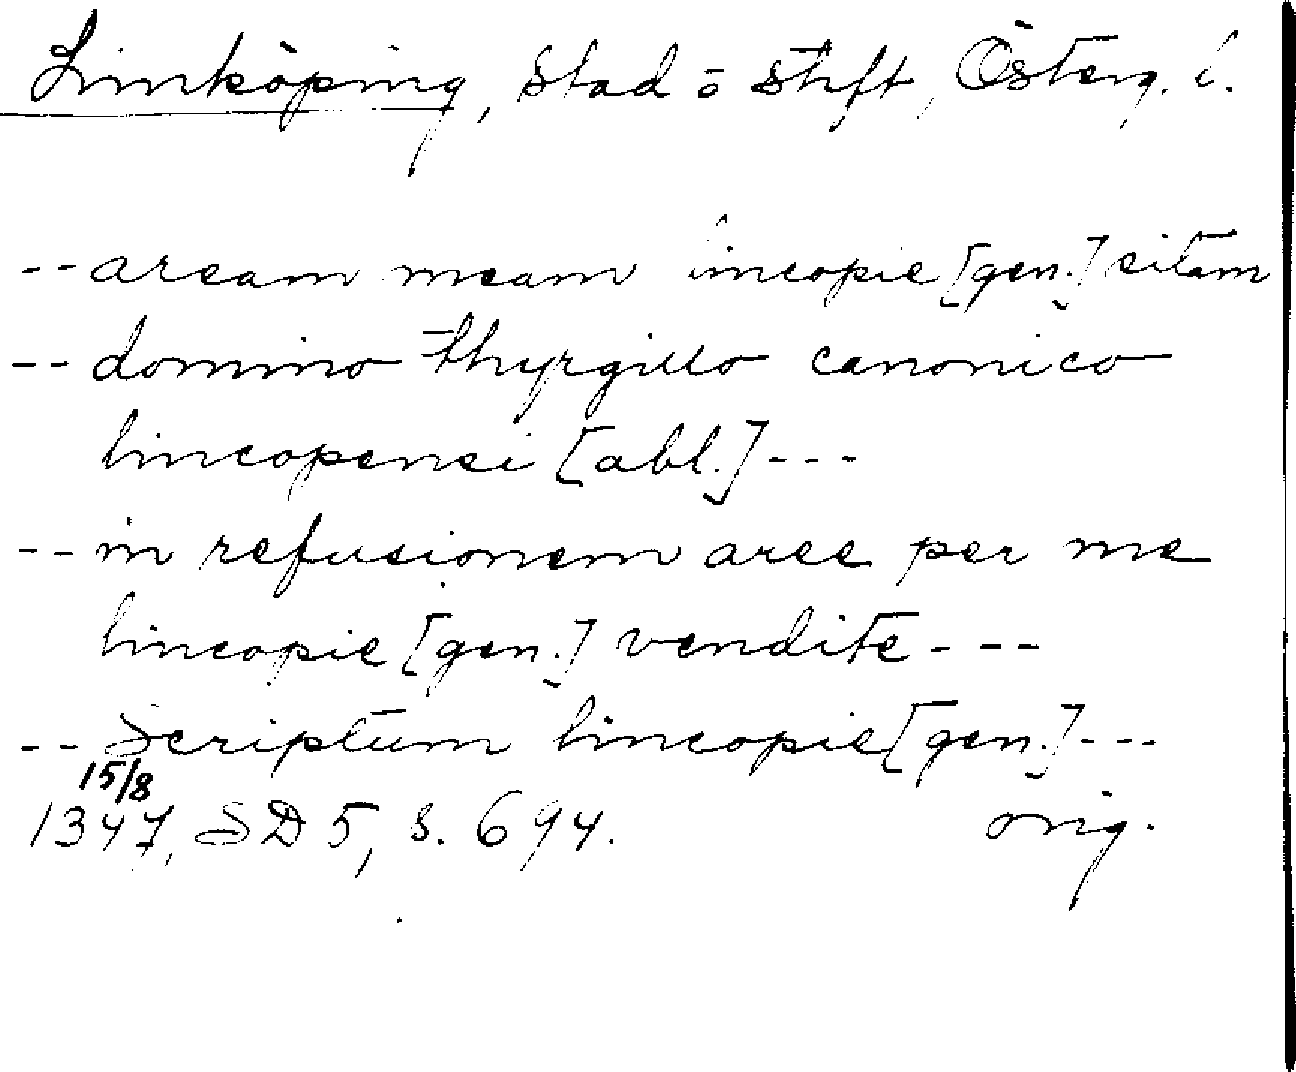 Linköping, Stad o stift, Österg. l.
-- aream meam lincopie [gen.] sitam
-- domino thyrgillo canonico
lincopensi [abl.] ---
-- in refusionem aree per me
lincopie [gen.] vendite ---
-- Scriptum lincopie [gen.] ---
15/8
1347, SD 5, s. 694. orig.